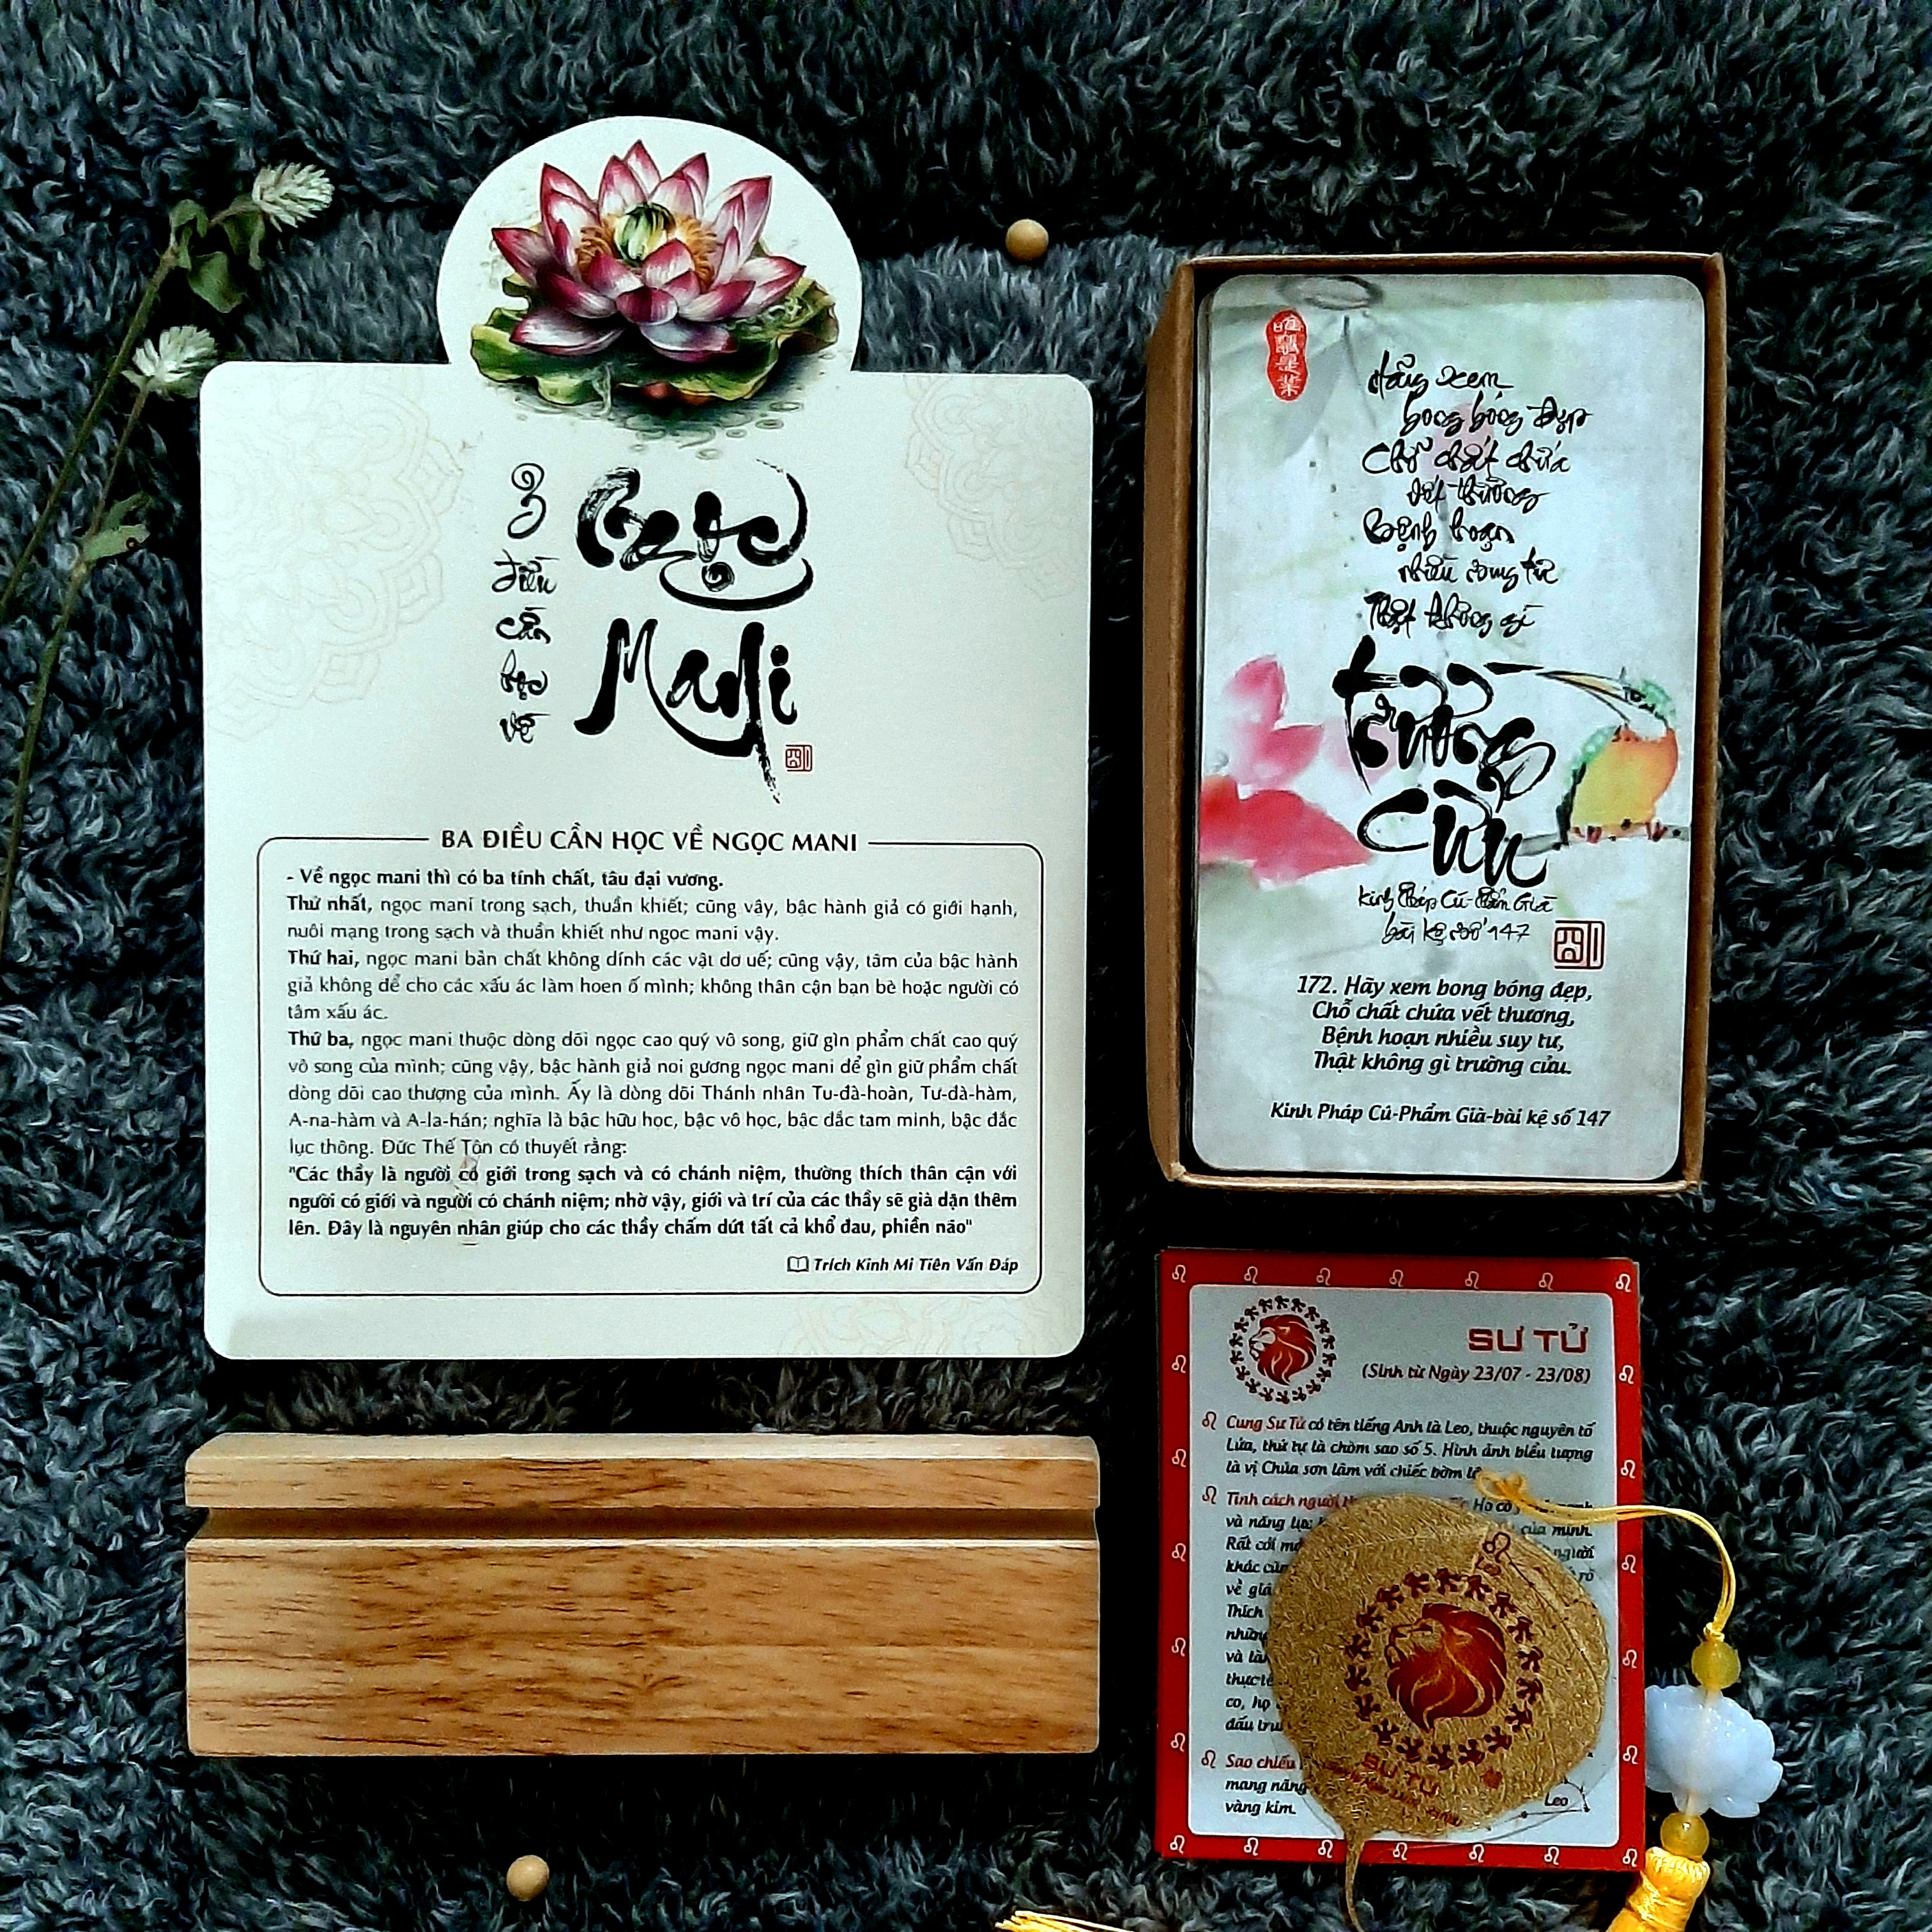 3
điều
cần
học
về
Ngọc
Mani
BA ĐIỀU CẦN HỌC VỀ NGỌC MANI
- Về ngọc mani thì có ba tính chất, tâu đại vương.
Thứ nhất, ngọc mani trong sạch, thuần khiết; cũng vậy, bậc hành giả có giới hạnh,
nuôi mạng trong sạch và thuần khiết như ngọc mani vậy.
Thứ hai, ngọc mani bản chất không dính các vật dơ uế; cũng vậy, tâm của bậc hành
giả không để cho các xấu ác làm hoen ố mình; không thân cận bạn bè hoặc người có
tâm xấu ác.
Thứ ba, ngọc mani thuộc dòng dõi ngọc cao quý vô song, giữ gìn phẩm chất cao quý
vô song của mình; cũng vậy, bậc hành giả noi gương ngọc mani để gìn giữ phẩm chất
dòng dõi cao thượng của mình. Ấy là dòng dõi Thánh nhân Tu-đà-hoàn, Tư-đà-hàm,
A-na-hàm và A-la-hán; nghĩa là bậc hữu học, bậc vô học, bậc đắc tam minh, bậc đắc
lục thông. Đức Thế Tôn có thuyết rằng:
"Các thầy là người có giới trong sạch và có chánh niệm, thường thích thân cận với
người có giới và người có chánh niệm; nhờ vậy, giới và trí của các thầy sẽ già dặn thêm
lên. Đây là nguyên nhân giúp cho các thầy chấm dứt tất cả khổ đau, phiền não"
Trích Kinh Mi Tiên Vấn Đáp
Hãy xem
bong bóng đẹp
Chỗ chất chứa
vết thương
Bệnh hoạn
nhiều suy tư
Thật không gì
trường
cửu
Kinh Pháp Cú-Phẩm Già
bài kệ số 147
172. Hãy xem bong bóng đẹp,
Chỗ chất chứa vết thương,
Bệnh hoạn nhiều suy tư,
Thật không gì trường cửu.
Kinh Pháp Cú-Phẩm Già-bài kệ số 147
SƯ TỬ
(Sinh từ Ngày 23/07 - 23/08)
Cung Sư Tử có tên tiếng Anh là Leo, thuộc nguyên tố
Lửa, thứ tự là chòm sao số 5. Hình ảnh biểu tượng
là vị Chúa sơn lâm với chiếc bờm
Tính cách người Họ có
và năng của mình.
Rất cởi người
khác rõ
về
Thích
những
và
thực tế
co, họ
đấu
Sao chiếu
mang năng
vàng kim.
SƯ TỬ
Leo